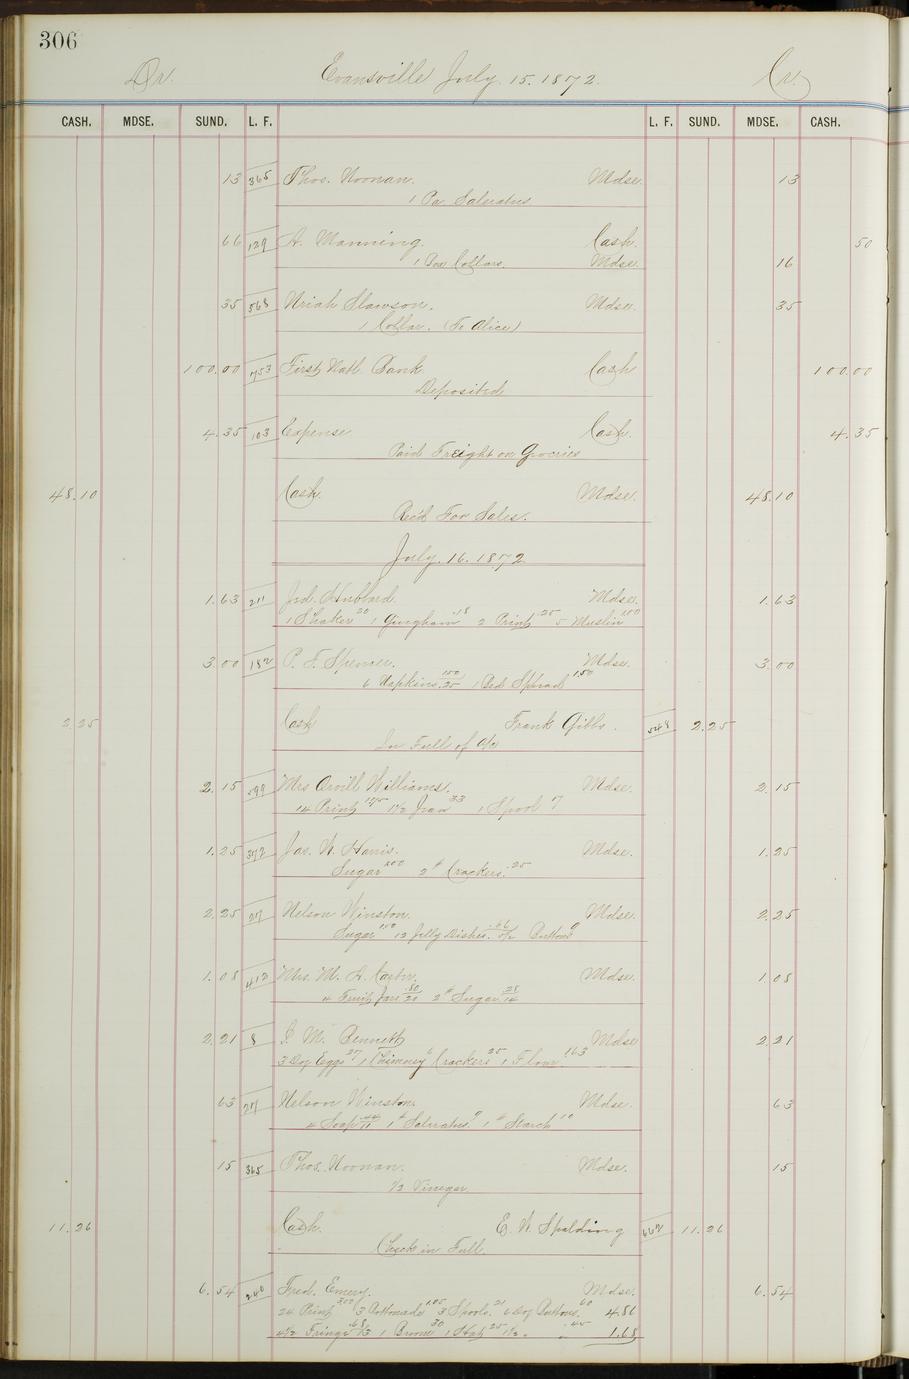 306
Dr. Evansville July. 15. 1872. Cr.
CASH. MDSE. SUND. L. F. L. F. SUND. MDSE. CASH.
13 365 Thos. Noonan. Mdse. 13
1 Pa Saleratus
66 129 A. Manning. Cash. 50
1 Box Collars. Mdse. 16
35 568 Uriah Slawson. Mdse. 35
1 Collar. (To Alice)
100.00 753 First Natl Bank Cash 100.00
Deposited
4.35 103 Expense Cash. 4.35
Paid Freight on Groceries
48.10 Cash. Mdse. 48.10
Rec'd For Sales.
July. 16. 1872
1.63 211 Jud. Hubbard. Mdse. 1.63
1 Shaker 20 1 Gingham 18 2 Print 25 5 Muslin 100
3.00 182 P. F. Spencer. Mdse. 3.00
6 Napkins. 150 25 1 Bed Spread 1.50
2.25 Cash Frank Gibbs. 548 2.25
In Full of a/c
2.15 599 Mrs Orvill Williams. Mdse. 2.15
14 Print 175 1½ Jean 33 1 Spool 7
1.25 372 Jas. W. Harris. Mdse. 1.25
Sugar 100 2# Crackers. 25
2.25 27 Nelson Winston. Mdse. 2.25
Sugar 12 Jelly Dishes. Buttons 9
1.08 412 Mrs. M. A. Carter. Mdse. 1.08
4 Fruit Jars 80 20 2# Sugar 28 14
2.21 8 I. M. Bennett Mdse 2.21
3 Doz Eggs 27 1 Chimney 6 Crackers 25 1 Flour. 163
63 27 Nelson Winston. Mdse. 63
4 Soap 44 11 1# Saleratus. 9 1# Starch 10
15 365 Thos. Noonan. Mdse. 15
½ Vinegar.
11.26 Cash. E. W. Spalding 662 11.26
Check in Full.
6.54 240 Fred. Emery. Mdse. 6.54
24 Print 300 3 Cottonade 105 3 Spools. 21 6 Doz Buttons 60 4.86
4½ Fringe 68 1 Broom 30 1 Hat 25 1½ " " 45 1.68